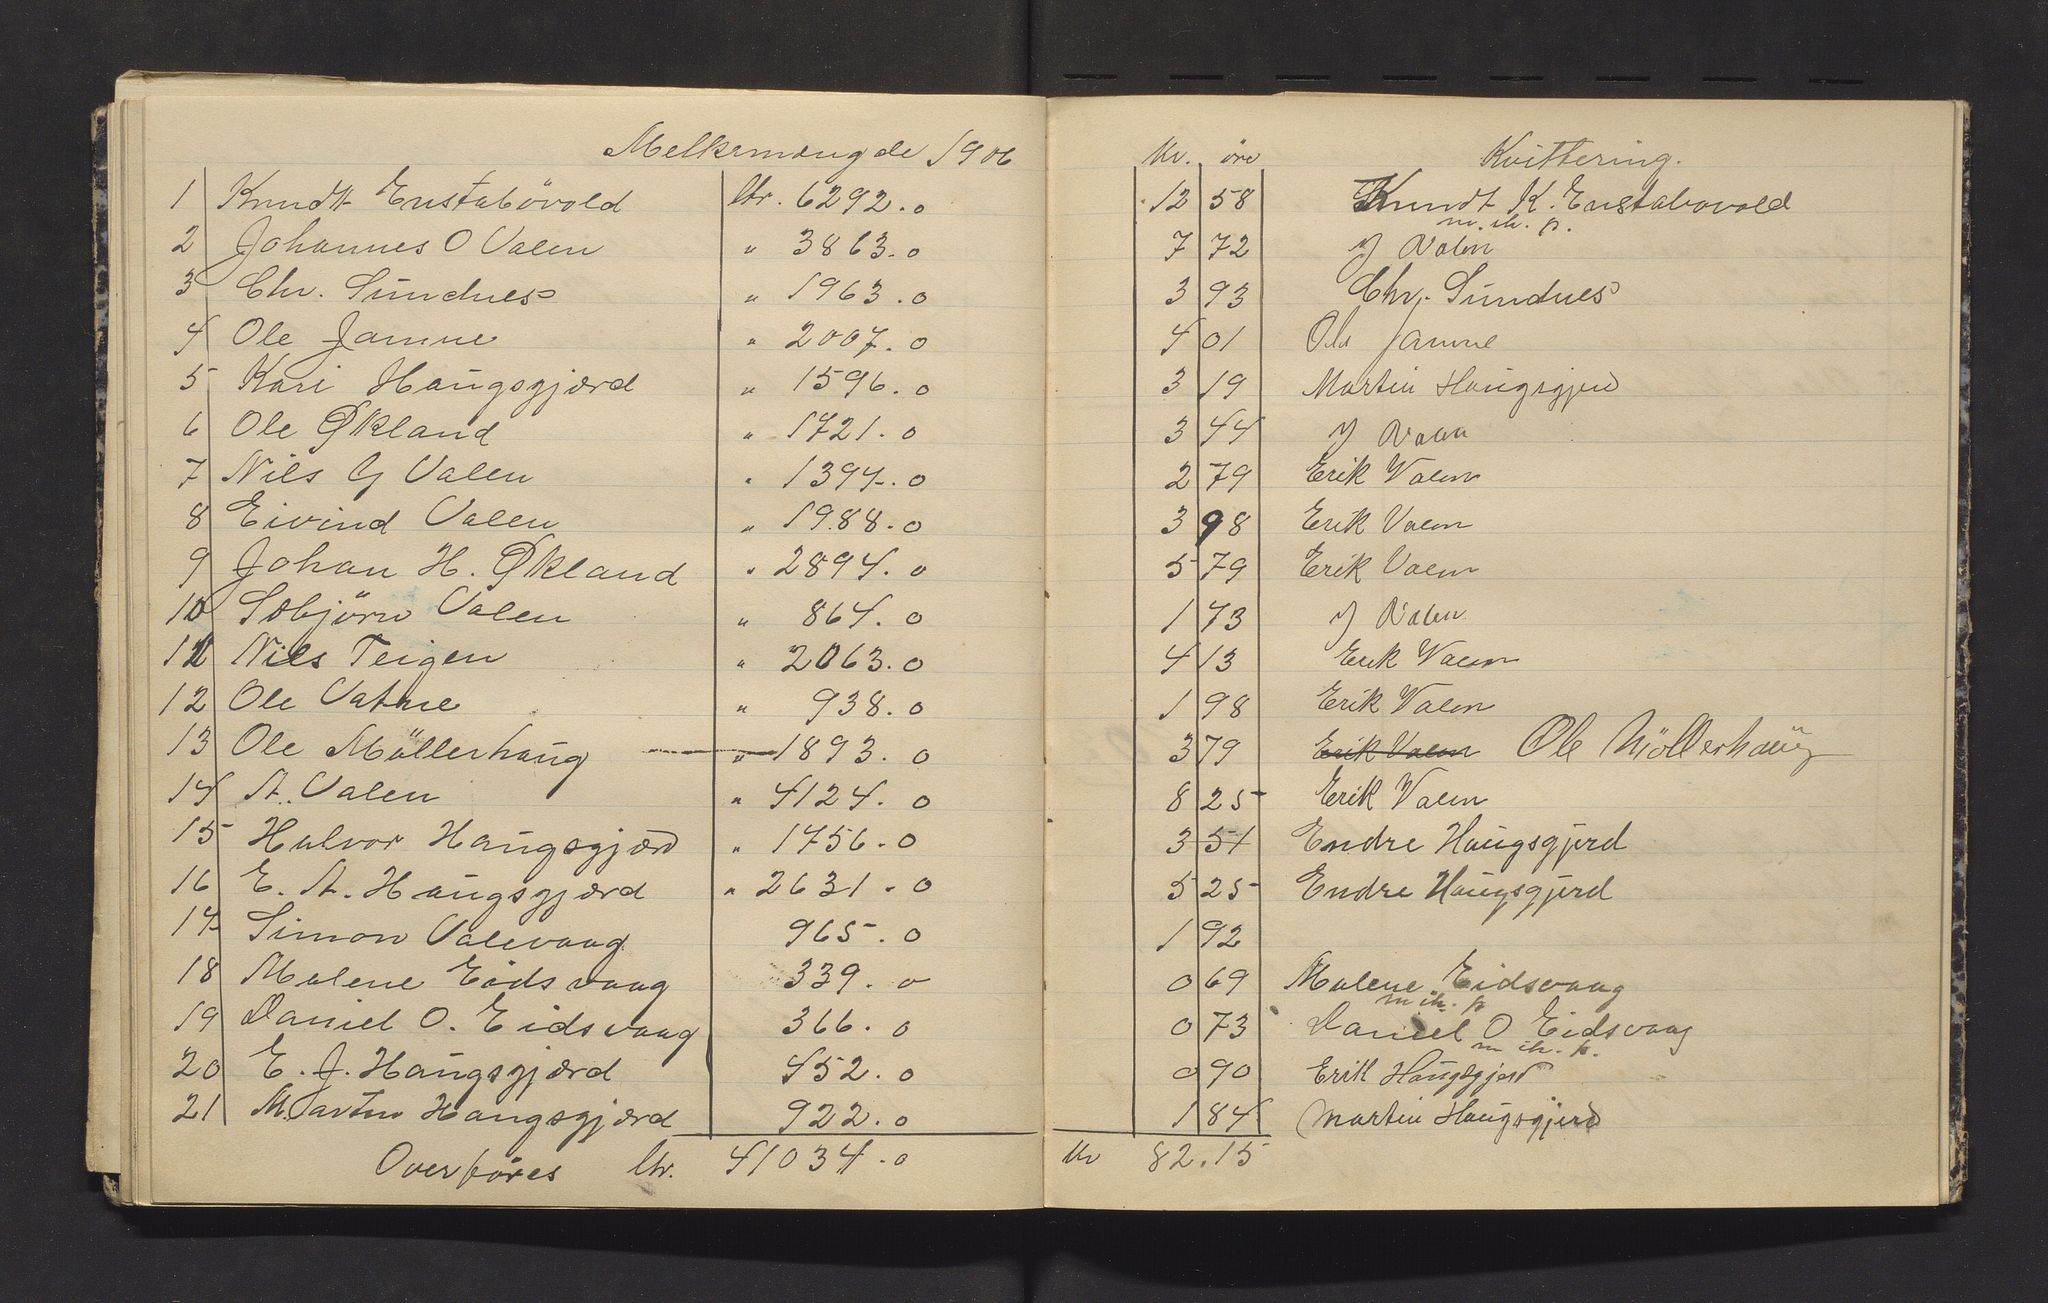 Melkemængde 1906 Kr. öre Kvittering.
1 Knudt Enstabövold ltr. 6292.0 12 58 Knudt K. Enstabovold
m. ih. p.
2 Johannes O Valen " 3863.0 7 72 J Valen
3 Chr. Sundnes " 1963.0 3 93 Chr. Sundnes
4 Ole Jamne " 2007.0 4 01 Ole Jamne
5 Kari Haugsgjærd " 1596.0 3 19 Martin Haugsgjerd
6 Ole Økland " 1721.0 3 44 J Valen
7 Nils G Valen " 1394.0 2 79 Erik Valen
8 Eivind Valen " 1988.0 3 98 Erik Valen
9 Johan H. Økland " 2894.0 5 79 Erik Valen
10 Sæbjörn Valen " 864.0 1 73 J Valen
11 Nils Teigen " 2063.0 4 13 Erik Valen
12 Ole Vatne " 938.0 1 98 Erik Valen
13 Ole Möllerhaug " 1893.0 3 79 Erik Valen Ole Möllerhaug
14 A. Valen " 4124.0 8 25 Erik Valen
15 Halvor Haugsgjærd " 1756.0 3 51 Endre Haugsgjerd
16 E. A. Haugsgjærd " 2631.0 5 25 Endre Haugsgjerd
17 Simon Valevaag 965.0 1 92
18 Malene Eidsvaag 339.0 0 69 Malene Eidsvaag
m ih. p
19 Daniel O. Eidsvaag 366.0 0 73 Daniel O Eidsvaag
m ih. p.
20 E. J. Haugsgjærd 452.0 0 90 Erik Haugsgjerd
21 Martin Haugsgjærd 922.0 1 84 Martin Haugsgjerd
Overföres ltr. 41034.0 Kr 82.15